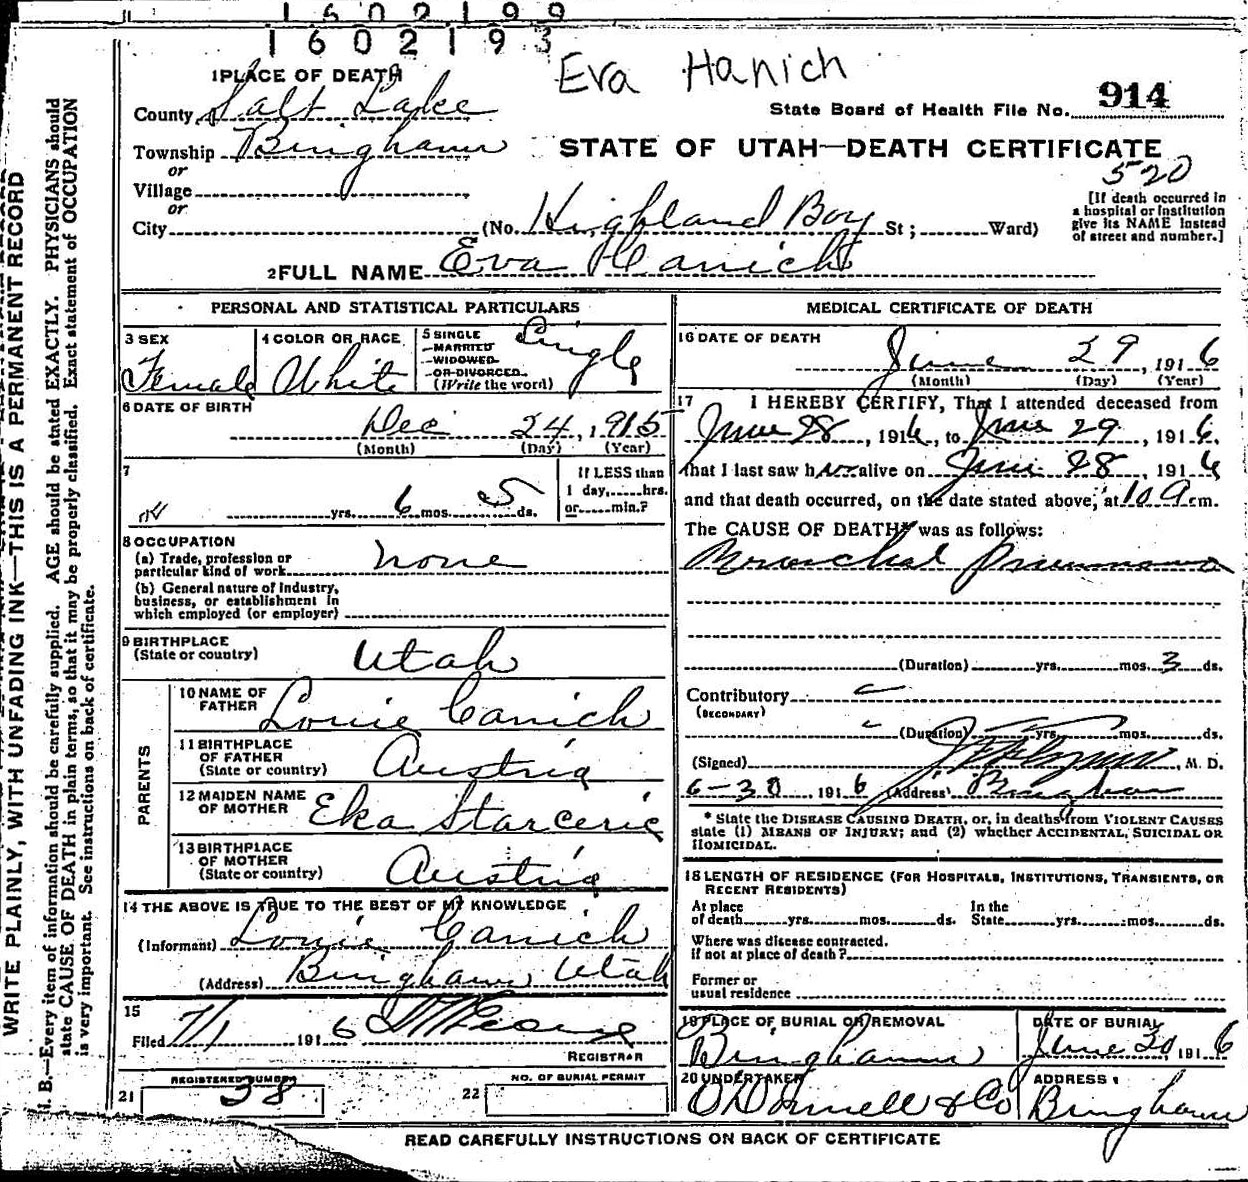 1602199
1602193
Eva Hanich
1 PLACE OF DEATH
County Salt Lake
State Board of Health File No. 914
Township Bingham
STATE OF UTAH—DEATH CERTIFICATE
or
520
Village
or
City (No. Highland Boy St; Ward)
[If death occurred in
a hospital or institution
give its NAME instead
of street and number.]
2 FULL NAME Eva Hanich
PERSONAL AND STATISTICAL PARTICULARS
3 SEX
Female
4 COLOR OR RACE
White
5 SINGLE
MARRIED
WIDOWED
OR DIVORCED
(Write the word)
Single
6 DATE OF BIRTH
Dec 24, 1915
(Month) (Day) (Year)
7
yrs. 6 mos. 5 ds.
If LESS than
1 day, hrs.
or min.?
8 OCCUPATION
(a) Trade, profession or
particular kind of work none
(b) General nature of industry,
business, or establishment in
which employed (or employer)
9 BIRTHPLACE
(State or country) Utah
PARENTS
10 NAME OF
FATHER Louie Canich
11 BIRTHPLACE
OF FATHER
(State or country) Austria
12 MAIDEN NAME
OF MOTHER Eka Starceric
13 BIRTHPLACE
OF MOTHER
(State or country) Austria
14 THE ABOVE IS TRUE TO THE BEST OF MY KNOWLEDGE
(Informant) Louie Canich
(Address) Bingham Utah
15
Filed 7/1 1916
REGISTRAR
21 REGISTERED NUMBER 38
22 NO. OF BURIAL PERMIT
MEDICAL CERTIFICATE OF DEATH
16 DATE OF DEATH
June 29, 1916
(Month) (Day) (Year)
17 I HEREBY CERTIFY, That I attended deceased from
June 28, 1916, to June 29, 1916.
that I last saw her alive on June 28, 1916
and that death occurred, on the date stated above, at 10 a m.
The CAUSE OF DEATH* was as follows:
Bronchial pneumonia
(Duration) yrs. mos. 3 ds.
Contributory
(SECONDARY)
(Duration) yrs. mos. ds.
(Signed) , M. D.
6-30, 1916 (Address) Bingham
* State the DISEASE CAUSING DEATH, or, in deaths from VIOLENT CAUSES
state (1) MEANS OF INJURY; and (2) whether ACCIDENTAL, SUICIDAL OR
HOMICIDAL.
18 LENGTH OF RESIDENCE (FOR HOSPITALS, INSTITUTIONS, TRANSIENTS, OR
RECENT RESIDENTS)
At place
of death yrs. mos. ds.
In the
State yrs. mos. ds.
Where was disease contracted.
if not at place of death?
Former or
usual residence
19 PLACE OF BURIAL OR REMOVAL
Bingham
DATE OF BURIAL
June 30 1916
20 UNDERTAKER
O'Donnell & Co
ADDRESS
Bingham
READ CAREFULLY INSTRUCTIONS ON BACK OF CERTIFICATE
WRITE PLAINLY, WITH UNFADING INK—THIS IS A PERMANENT RECORD
N. B.—Every item of information should be carefully supplied. AGE should be stated EXACTLY. PHYSICIANS should
state CAUSE OF DEATH in plain terms, so that it may be properly classified. Exact statement of OCCUPATION
is very important. See instructions on back of certificate.